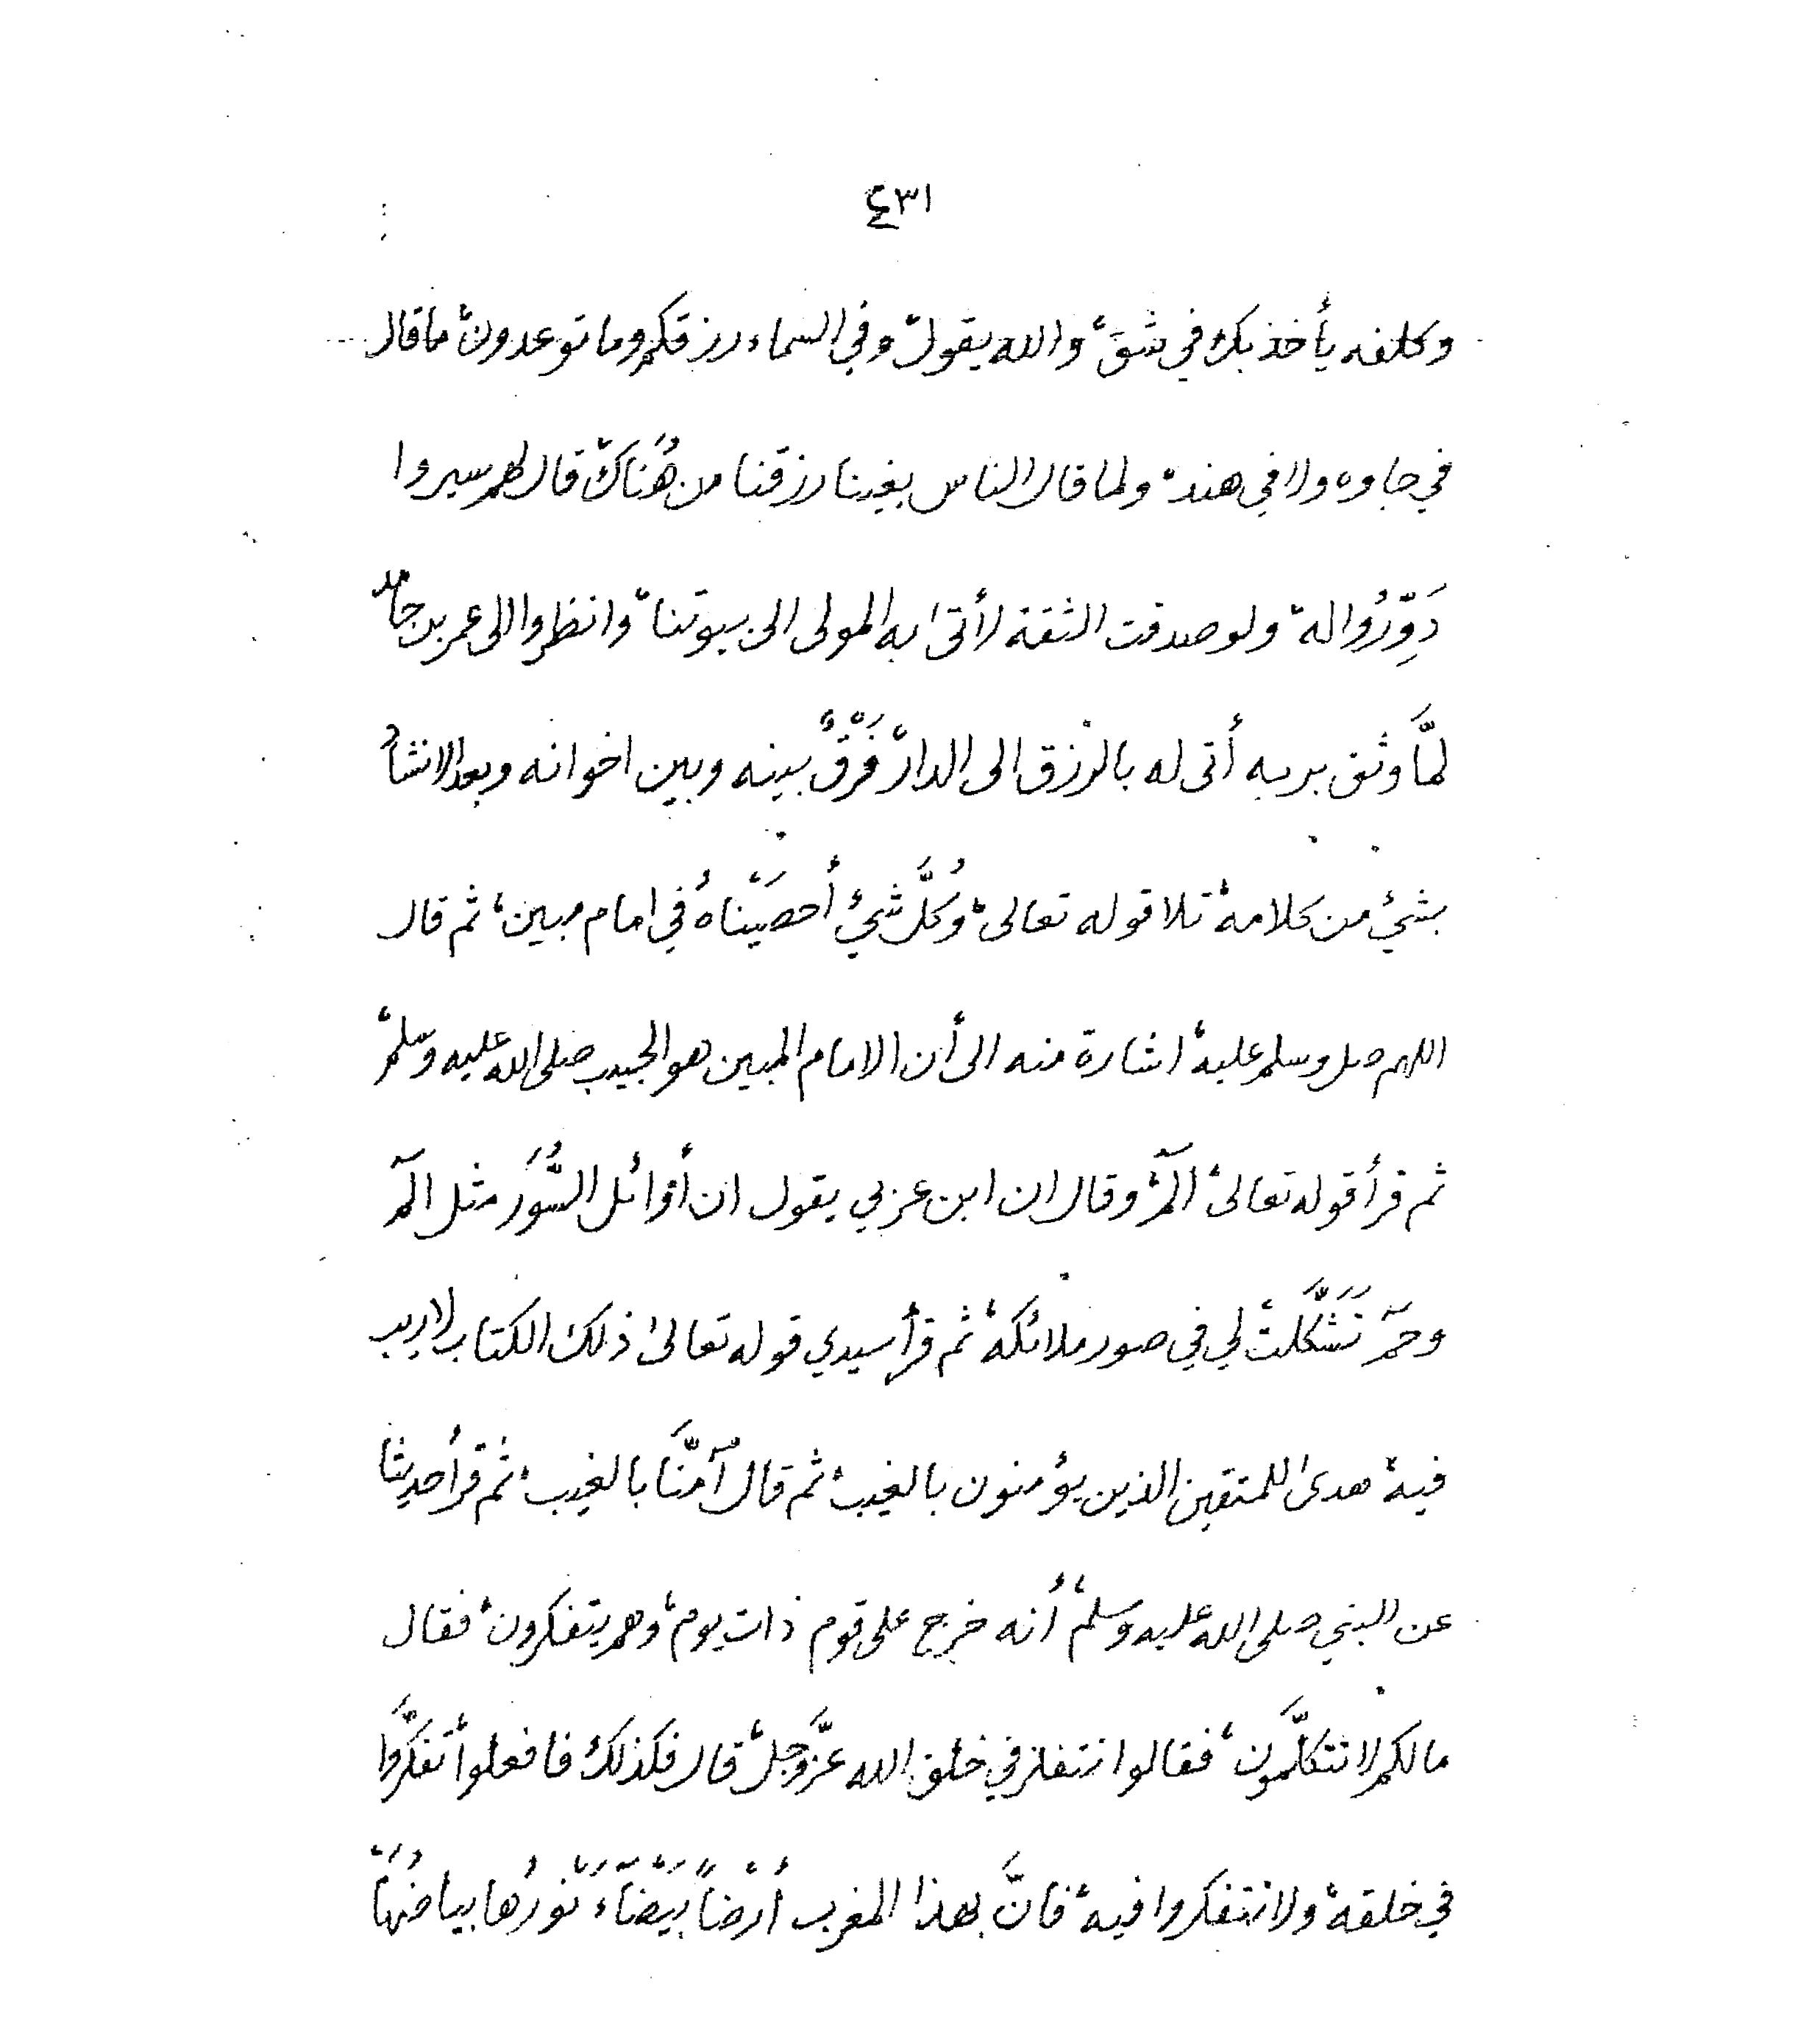 ٤٣١
وكلفه يأخذ بك في شَقَ، والله يقول، وفي السماء رزقكم وما توعدون، ما قال
في جاوه ولا في هند، ولما قال الناس بغينا رزقنا من هُنَاك، قال لهم سيروا
دَوِّرُوا له، ولو صدقت الثقة لأتى به المولى الى بيوتنا، وانظروا الى عمر بن حامد
لمَّا وثق بربه أتى له بالرزق الى الدار، فَرْقٌ بينه وبين اخوانه وبعد الانشاد
بشئ من كلامه، تلا قوله تعالى، وَكُلَّ شَيْءٍ أَحصَيْنَاهُ في امام مبين، ثم قال
اللهم صل وسلم عليه، اشارة منه الى أن الامام المبين هو الحبيب صلى الله عليه وسلم،
ثم قرأ قوله تعالى، الٓمٓ، وقال ان ابن عربي يقول ان أوائل السُّوَر مثل الٓمٓ
وحمٓ تَشَكَّلت لي في صور ملائكة، ثم قرأ سيدي قوله تعالى، ذلك الكتاب لا ريب
فيه، هدى للمتقين الذين يؤمنون بالغيب، ثم قال، آمَنَّا بالغيب، ثم قرأ حديثا
عن النبي صلى الله عليه وسلم، أنه خرج على قوم ذات يوم، وهم يتفكرون، فقال
مالكم لا تتكلَّمون، فقالوا نتفكر في خلق الله عزَّوجل، قال فكذلك فافعلوا، تفكَّروا
في خلقه، ولا تتفكروا فيه، فانَّ بهذا المغرب أَرْضاً بَيْضَآءَ، نُورُها بياضُهَا،